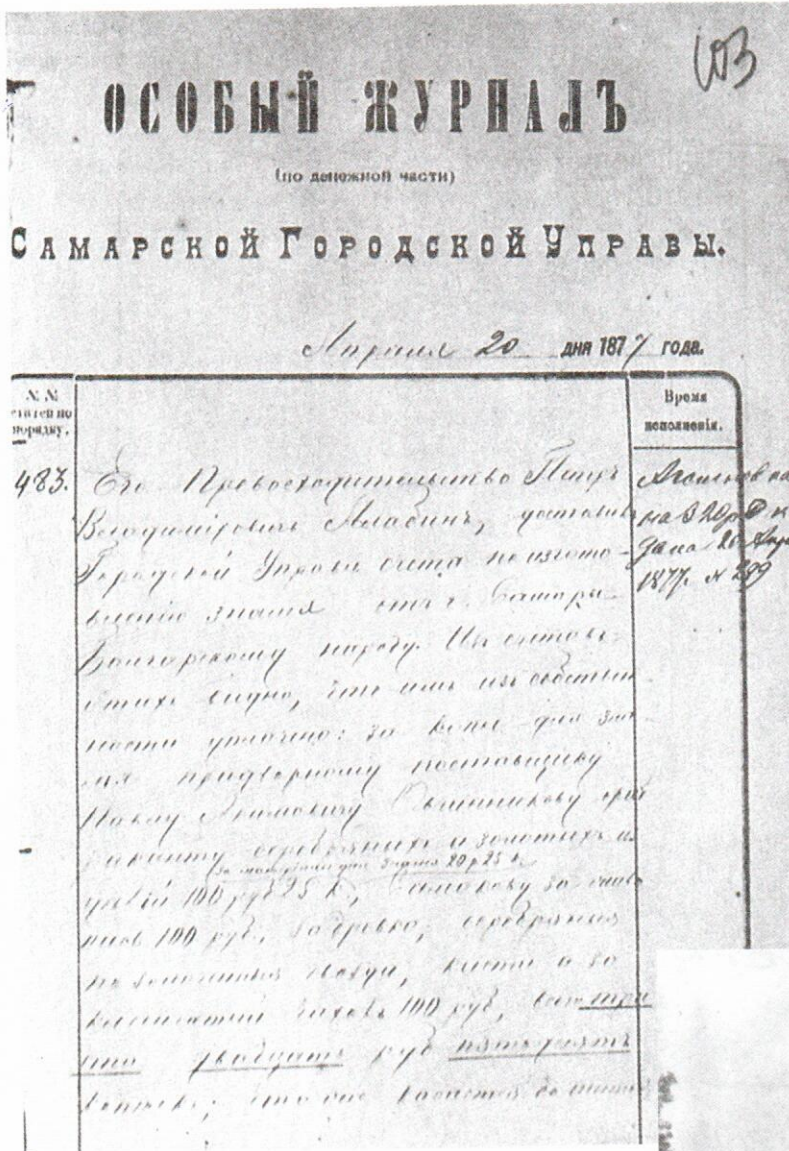 103
ОСОБЫЙ ЖУРНАЛЪ
(по денежной части)
Самарской Городской Управы.
Апреля 20 дня 1877 года.
№ №
статей по
порядку.
Время
исполненія.
483. Его Превосходительство Петръ
Владиміровичъ Алабинъ, доставилъ
Городской Управѣ счета по изгото-
вленію знамя отъ г. Самары
Болгарскому народу. Изъ счетовъ
этихъ видно, что имъ изъ собствен
ности уплочено: за копье для зна-
мя придворному поставщику
Павлу Акимовичу Овчинникову
серебряныхъ и золотыхъ из
за матерію для знамя 20 р 25 к.
дѣлій 100 руб 25 к., за
пись 100 руб., за древко, серебряныя
позолоченыя гвозди, кисти и за
чехолъ 100 руб, всего три
ста двадцать руб пятьдесятъ
копѣекъ; что же касается до
Ассигновка
на 320 р 50 к
26 Апр
1877 № 289